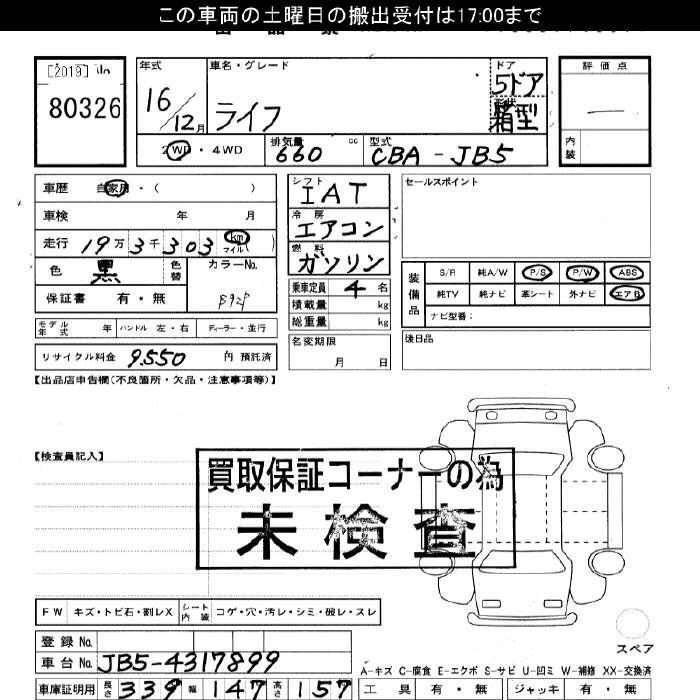 この車両の土曜日の搬出受付は17:00まで
[2019] No
80326
年式
16/12月
車名・グレード
ライフ
ドア
5ドア
形状
箱型
評価点
―
内装
2WD・4WD
排気量
660 cc
型式
CBA-JB5
車歴 自家用・( )
車検 年 月
走行 19万3千303 km マイル( )
色 黒 色替
カラーNo.
保証書 有・無
シフト
IAT
冷房
エアコン
燃料
ガソリン
乗車定員 4 名
積載量 kg
総重量 kg
名変期限
月 日
セールスポイント
装備品
S/R 純A/W P/S P/W ABS
純TV 純ナビ 革シート 外ナビ エアB
ナビ型番:
後日品
モデル年式 年 ハンドル 左・右 ディーラー・並行
リサイクル料金 9.550 円 預託済
【出品店申告欄(不良箇所・欠品・注意事項等)】
【検査員記入】
買取保証コーナーの為
未検査
FW キズ・トビ石・割レX シート内装 コゲ・穴・汚レ・シミ・破レ・スレ
登録No.
車台No. JB5-4317899
スペア
A-キズ C-腐食 E-エクボ S-サビ U-凹ミ W-補修 XX-交換済
車庫証明用 長さ 339 幅 147 高さ 157
工具 有・無 ジャッキ 有・無